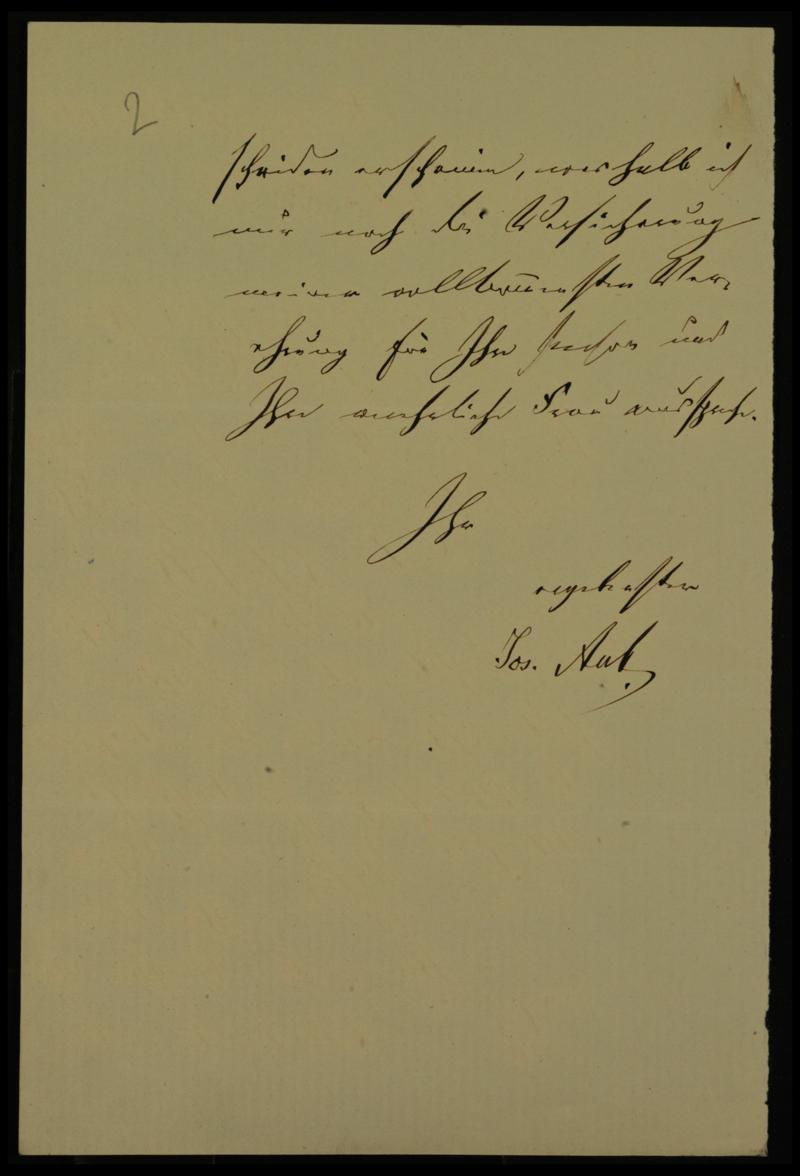 2
scheiden erscheinen, weshalb ich
nur noch die Versicherung
meiner vollkommensten Ver-
ehrung für Ihre Person und
Ihre verehrliche Frau ausspreche.
Ihr
ergebenster
Jos. Aub